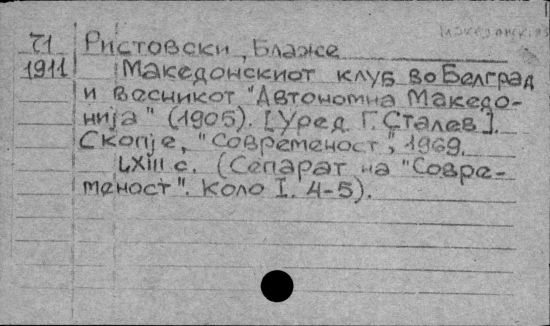 71 Ристовски, Блаже
1911 Македонскиот клуб во Белград
и весникот "Автономна Македо-
нија" (1905). [Уред. Г. Сталев].
Скопје, "Современост", 1969.
LXIII с. (Сепарат на "Совре-
меност". Коло I. 4-5).